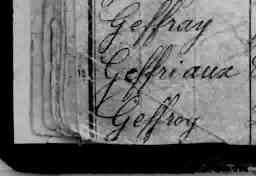 Geffray
Geffriaux
Geffroy